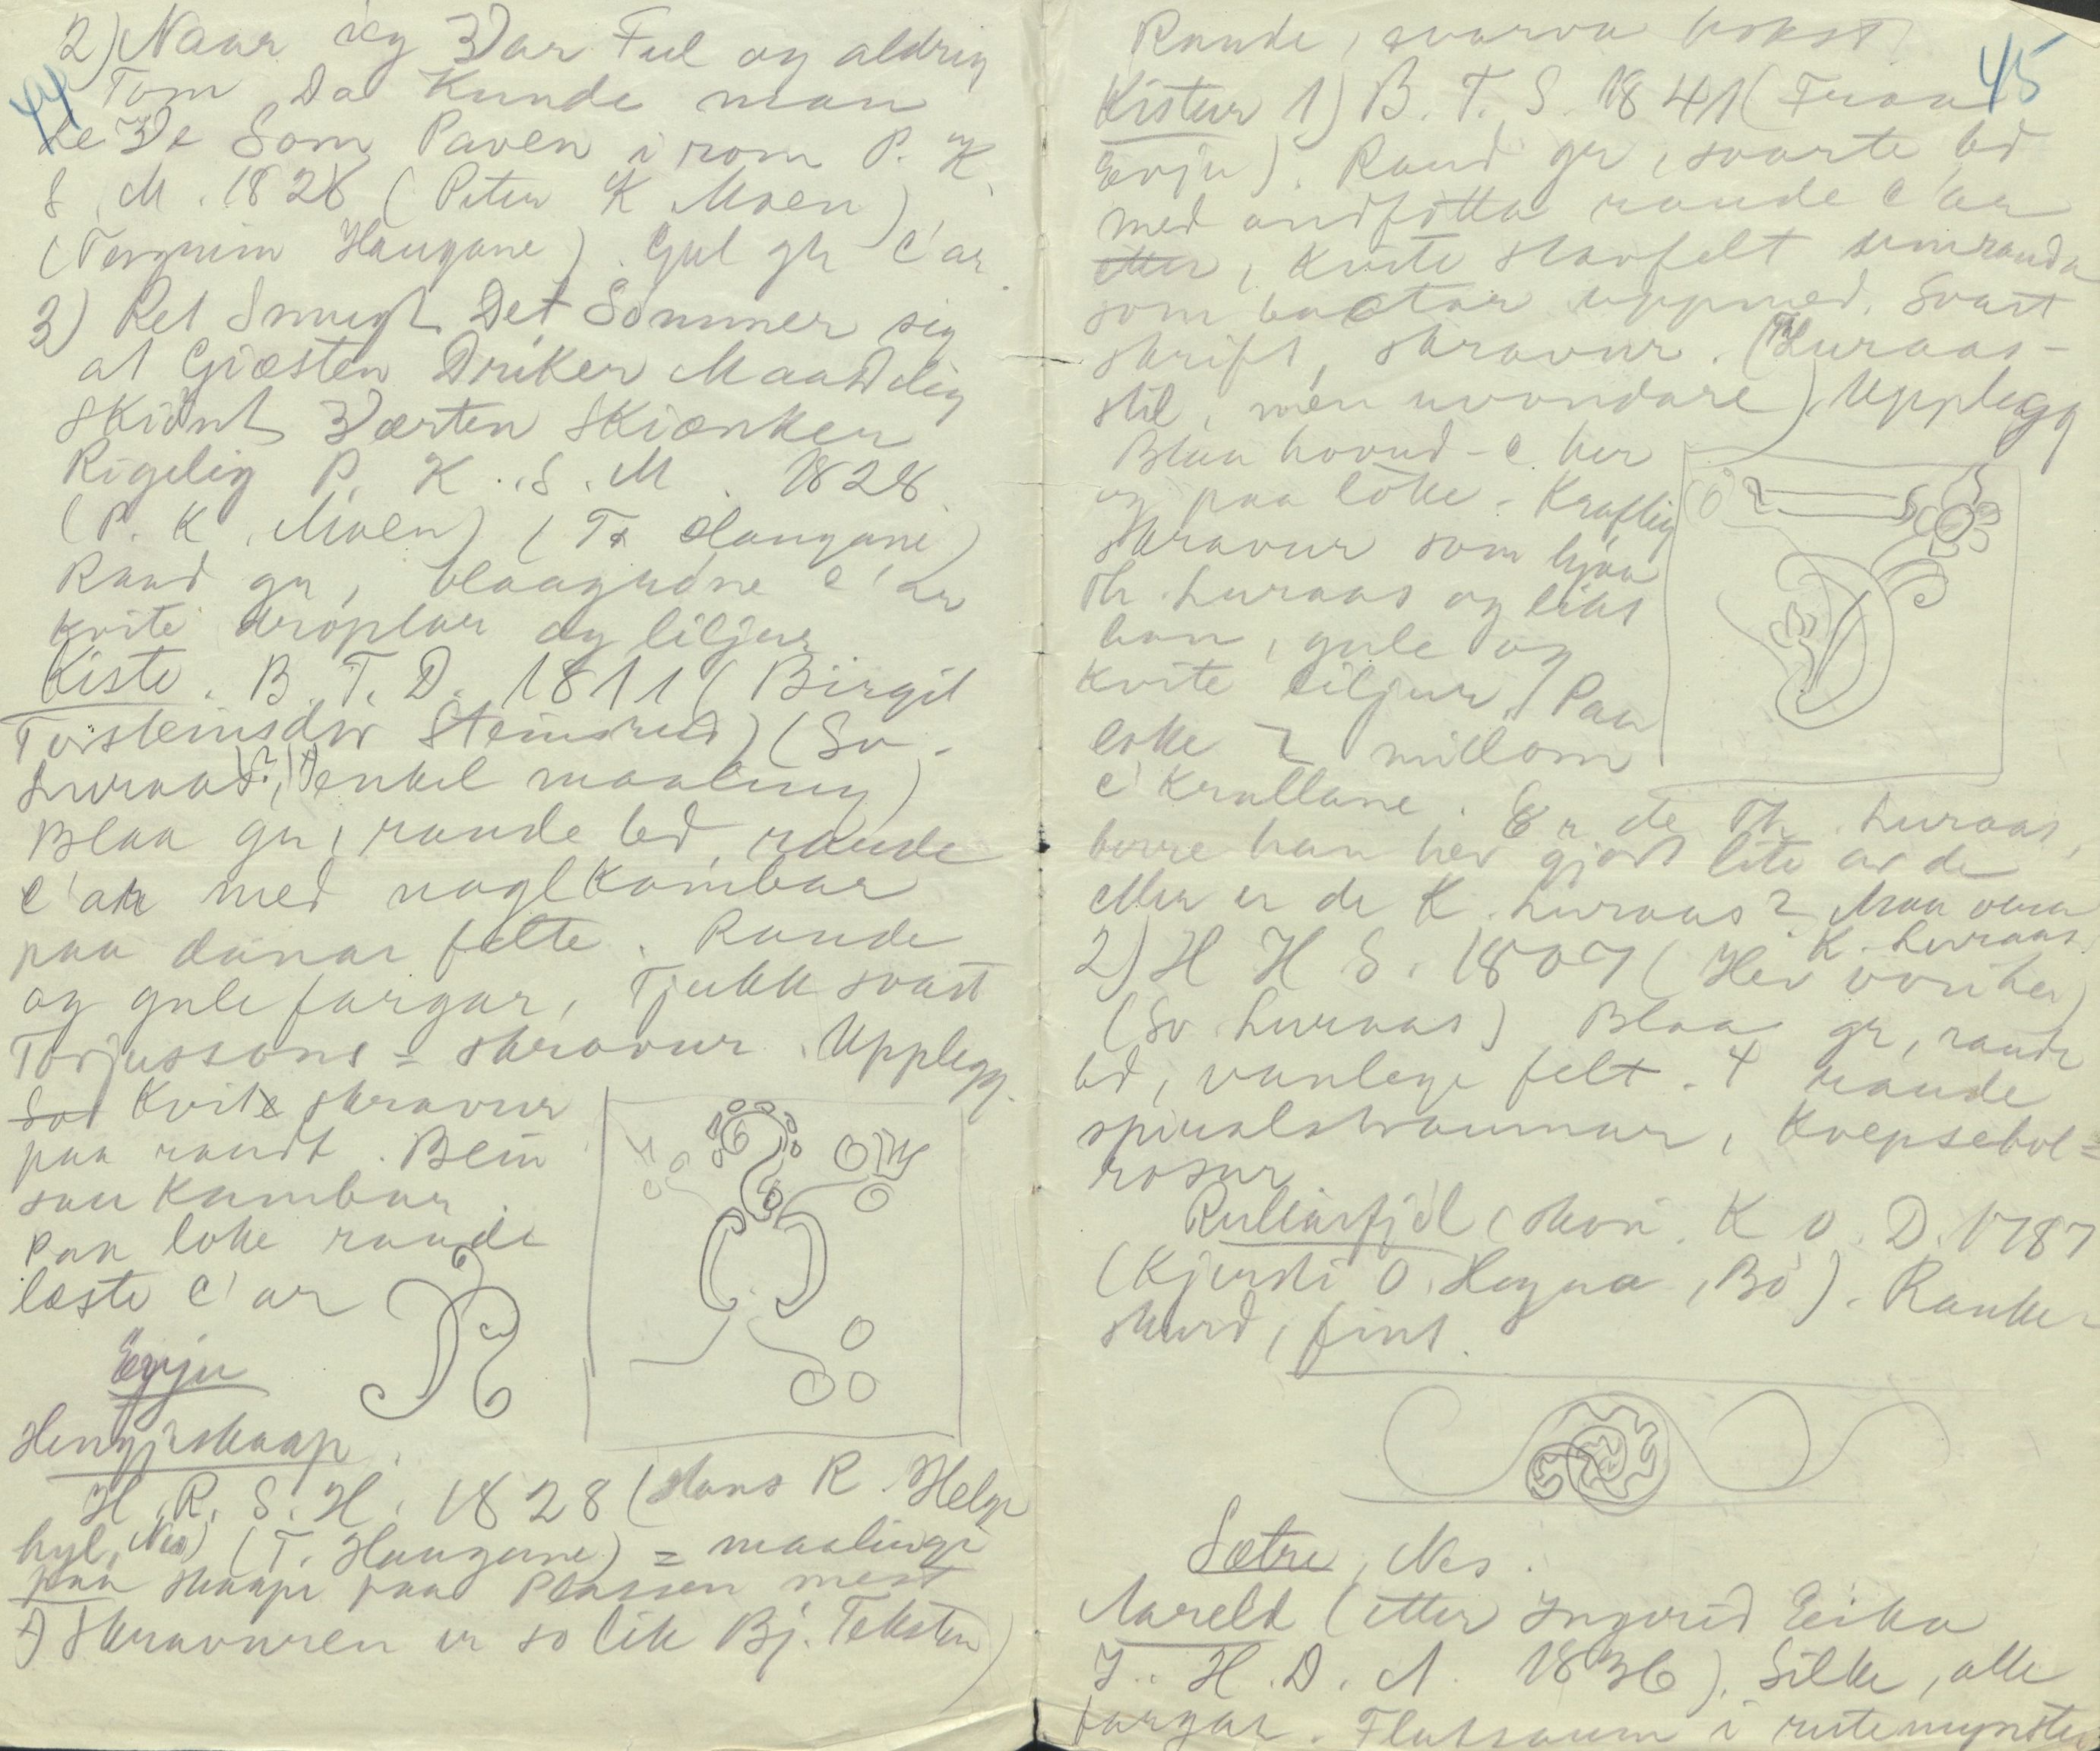 44
2) Naar ieg Var Ful og aldrig
Tom Da Kunde man
Le Ve Som Paven i rom P. K.
S. M. 1828 (Peter K Moen)
(Torgrim Haugane). Gul gr C'ar
3) Ret Smugt Det Sømmer sig
at Giæsten Driker Maadelig
Skiønt Værten Skiænker
Rigelig P. K. S. M. 1828
(P. K. Moen) (T. Haugane)
Raud gr, blaagrøne C'ar
kvite droplar og liljur
Kiste. B. T. D. 1811 (Birgit
Torsteinsdtr Steinsrud) (So-
Luraas?, enkel maaling)
Blaa gr, raude bd, raude
C'ar med naglkambar
paa danar felte. Raude
og gule fargar, Tjukk svart
Torjussons = skravur. Upplegg
Kvit skravur
paa raudt. Bein
sau kambar
Paa loke raude
læste C'ar
Evju
Hengjeskaap.
H. R. S. H. 1828 (Hans R. Helge
hyl, Nes) (T. Haugane) = maalinge
paa skaape paa Plassen mest
+) Skravuren er so lik Bj. Teksten)
45
Raude, svarva kokst
Kistur 1) B. T. S. 1841 (Fraa
Evju). Raud gr, svarte bd
med andføtta raude C'ar
etter, Kvite skovfelt umranda
som bactar uppmed. Svart
skrift, skravur. (Th Luraas-
stil, men uvondare). Upplegg
Blaa hovud-C her
og paa loke. Kraftig
skravur som hjaa
Th. Luraas og liks
han, gule og
kvite liljur. Paa
loke 2 millom
C' Krullane. Er de Th. Luraas,
berre han hev gjort lite av de
eller er de K. Luraas? Maa vera
K. Luraas
2) H H S. 1809 (Hev vori her)
(So Luraas) Blaa gr, raude
bd, vanlege felt. 4 raude
spiralstraumar, Kvepsebol=
rosur
Rullarfjøl (skori. K O. D. 1787
(Kjersti O. Hegna, Bø). Ranke-
skurd, fint.
Sætre, Nes.
Aareld (etter Ingerid Eika
I. H. D. A. 1836). Silke, alle
fargar. Flatsaum i rutemynster